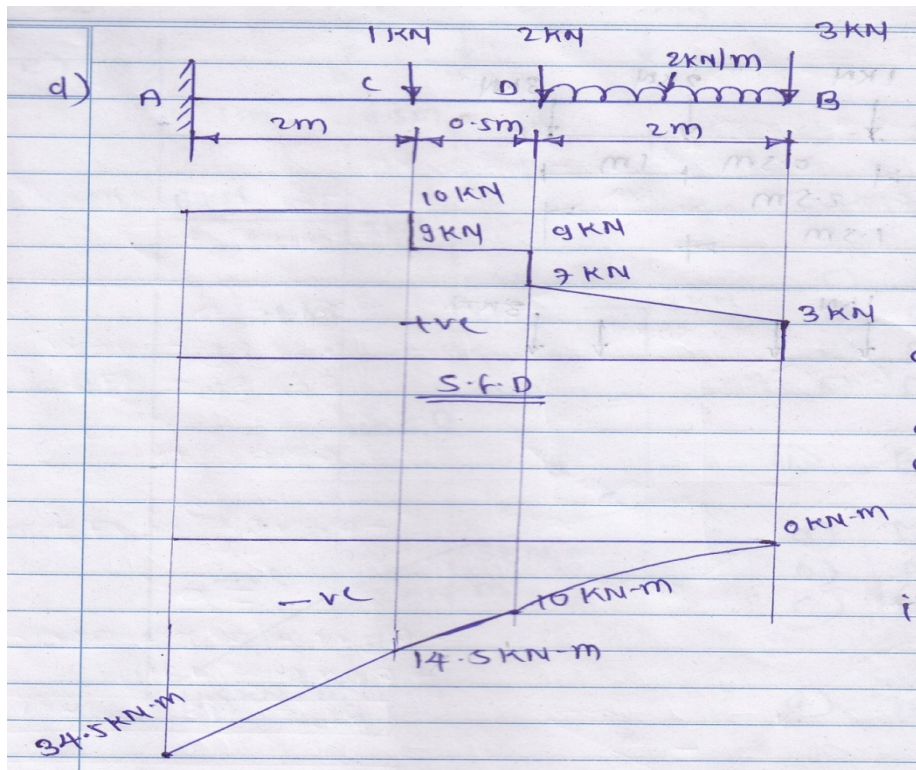 1KN 2KN 3KN
d) A C D 2KN/m B
2m 0.5m 2m
10KN
9KN 9KN
7KN
3KN
+ve
S.F.D
0KN-m
-ve 10KN-m
14.5KN-m
34.5KN-m